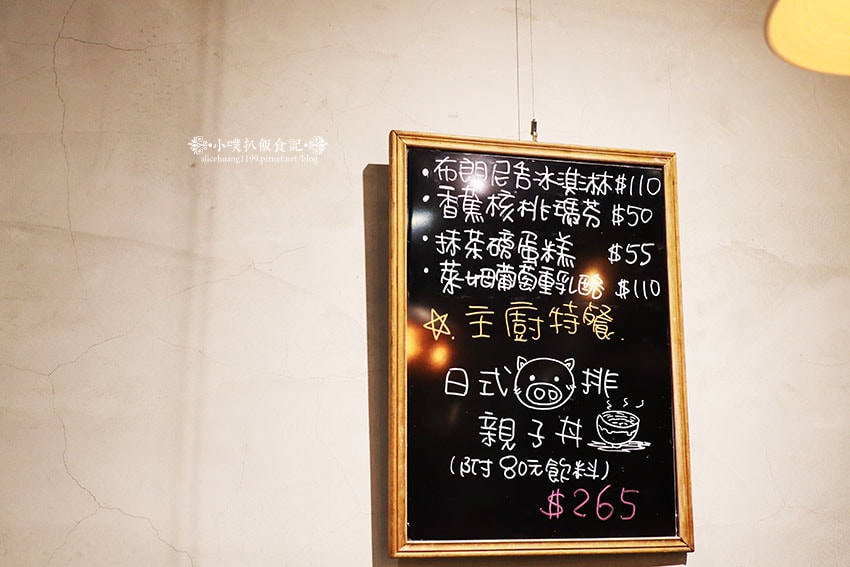 小噗扒飯食記
alicehuang1199.pixnet.net/blog
•布朗尼香冰淇淋$110
•香蕉核桃瑪芬 $50
•抹茶磅蛋糕 $55
•萊姆葡萄重乳酪 $110
☆.主廚特餐.
日式 排
親子丼
(附80元飲料)
$265